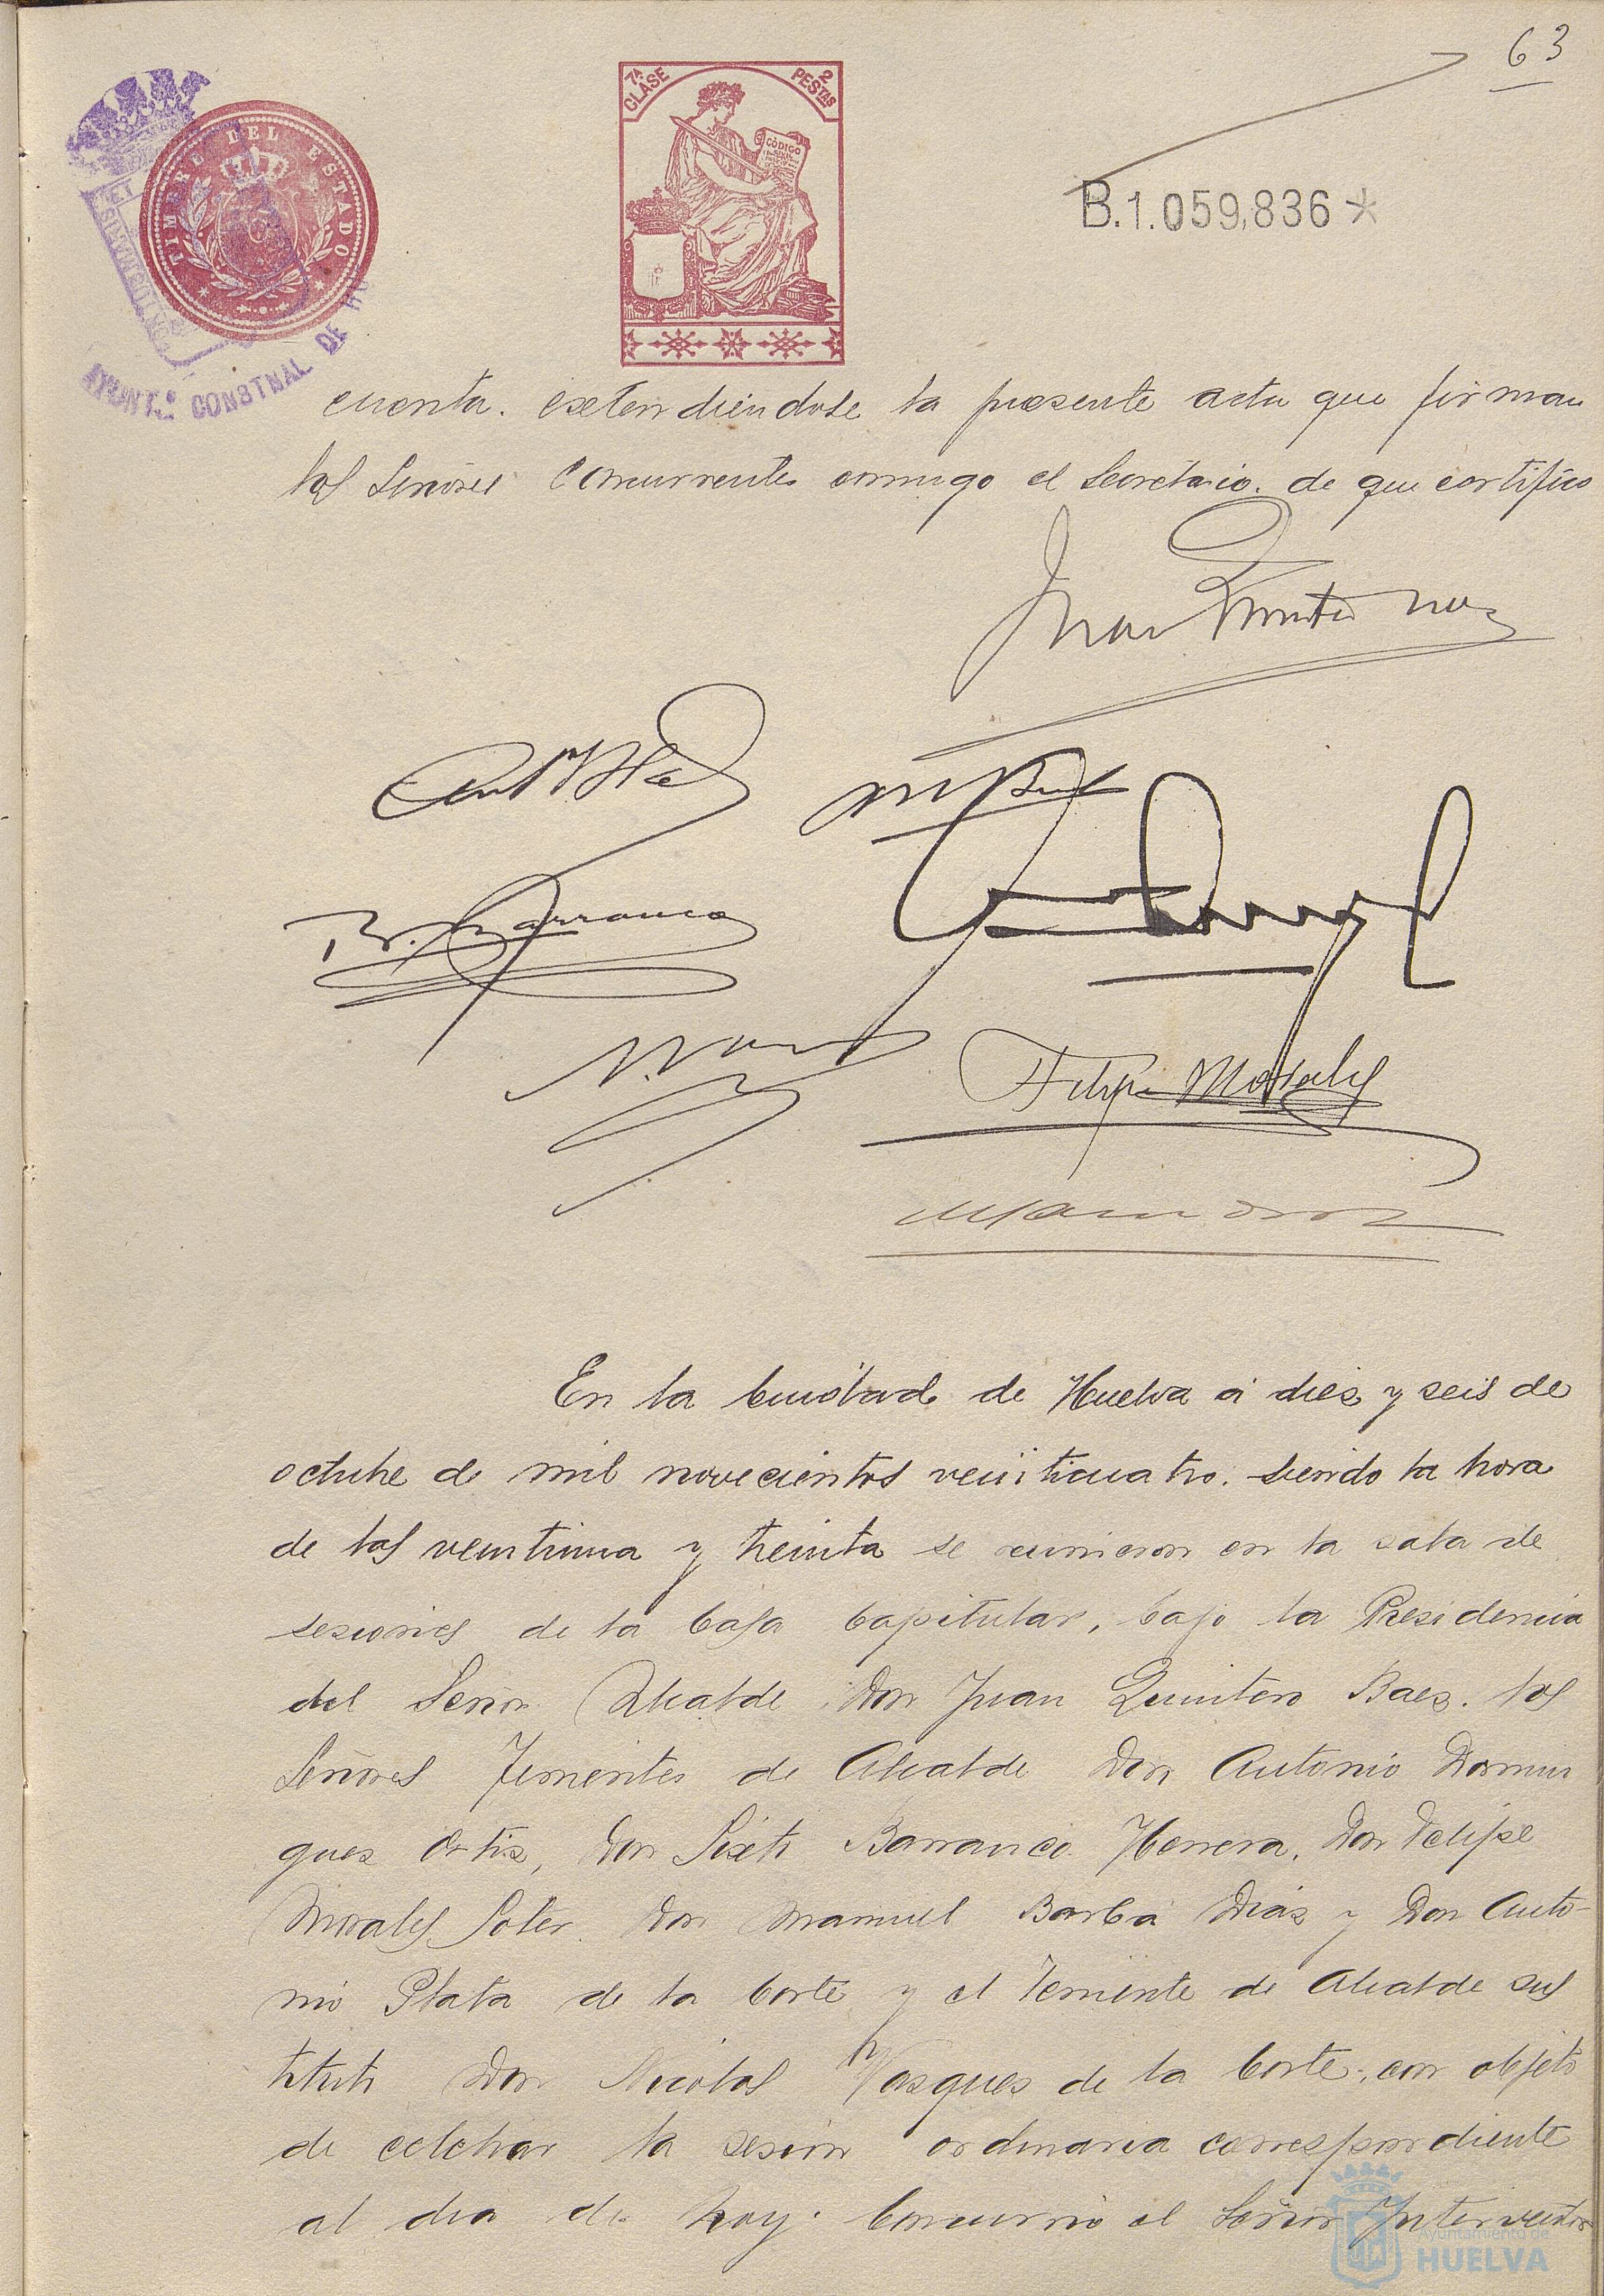 63
TIMBRE DEL ESTADO
7ª CLASE
2 PESTAS
CÓDIGO
B.1.059,836*
AYUNT.º CONSTNAL DE
cuenta. extendiéndose la presente acta que firman
los Señores Concurrentes conmigo el Secretario. de que certifico
Juan Quintero Baez
B. Barranco
Felipe Morales
En la Ciudad de Huelva a diez y seis de
octubre de mil novecientos veinticuatro. siendo la hora
de las veintiuna y treinta se reunieron en la sala de
sesiones de la Casa Capitular, bajo la Presidencia
del Señor Alcalde Don Juan Quintero Baez. los
Señores Tenientes de Alcalde Don Antonio Domin
guez Ortiz, Don Sixto Barranco Herrera, Don Felipe
Morales Soler. Don Manuel Barba Diáz y Don Anto-
nio Plata de la Corte y el Teniente de Alcalde sus
tituto Don Nicolas Vazquez de la Corte, con objeto
de celebrar la sesión ordinaria correspondiente
al dia de hoy. Concurrió el Señor Interventor
Ayuntamiento de
HUELVA